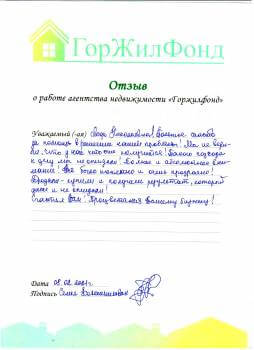 ГорЖилФонд
Отзыв
о работе агентства недвижимости «Горжилфонд»
Уважаемый (-ая) Николаевна! Большое спасибо
за помощь в решении нашей проблемы! Мы не вери-
ли, что у нас что-то получится! Такого подхода
к делу мы не ожидали! Полное и абсолютное вни-
мание! Всё было понятно и очень прозрачно!
пришли и получили результат, который
даже и не ожидали!
Счастья Вам! Процветания Вашему бизнесу!
Дата 08.02
Подпись Семья